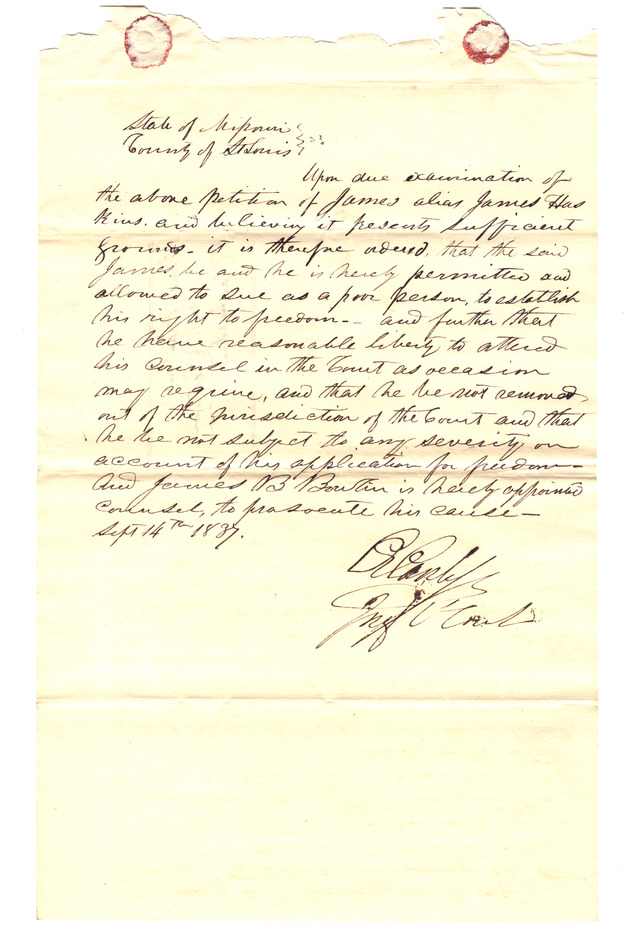 State of Missouri
County of St Louis
Upon due examination of
the above petition of James alias James Has
kins. and believing it presents sufficient
grounds - it is therefore ordered, that the said
James, be and he is hereby permitted and
allowed to sue as a poor person, to establish
his right to freedom - - and further that
he have reasonable liberty to attend
his counsel in the Court as occasion
may require, and that he be not removed
out of the jurisdiction of the Court and that
he be not subject to any severity on
account of his application for freedom -
And James B Bowlin is hereby appointed
counsel, to prosecute his cause -
Sept 14th 1837.